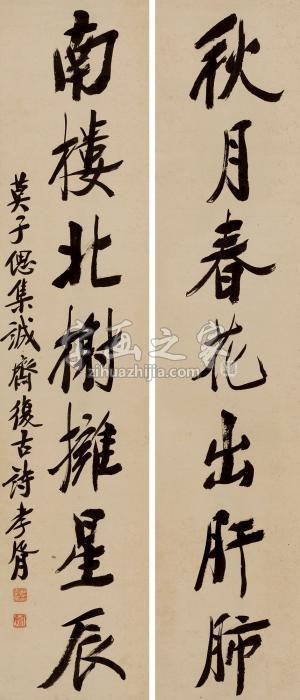 秋月春花出肝肺
南樓北榭擁星辰
莫子偲集誠齋復古詩孝胥
字画之家
zihuazhijia.com